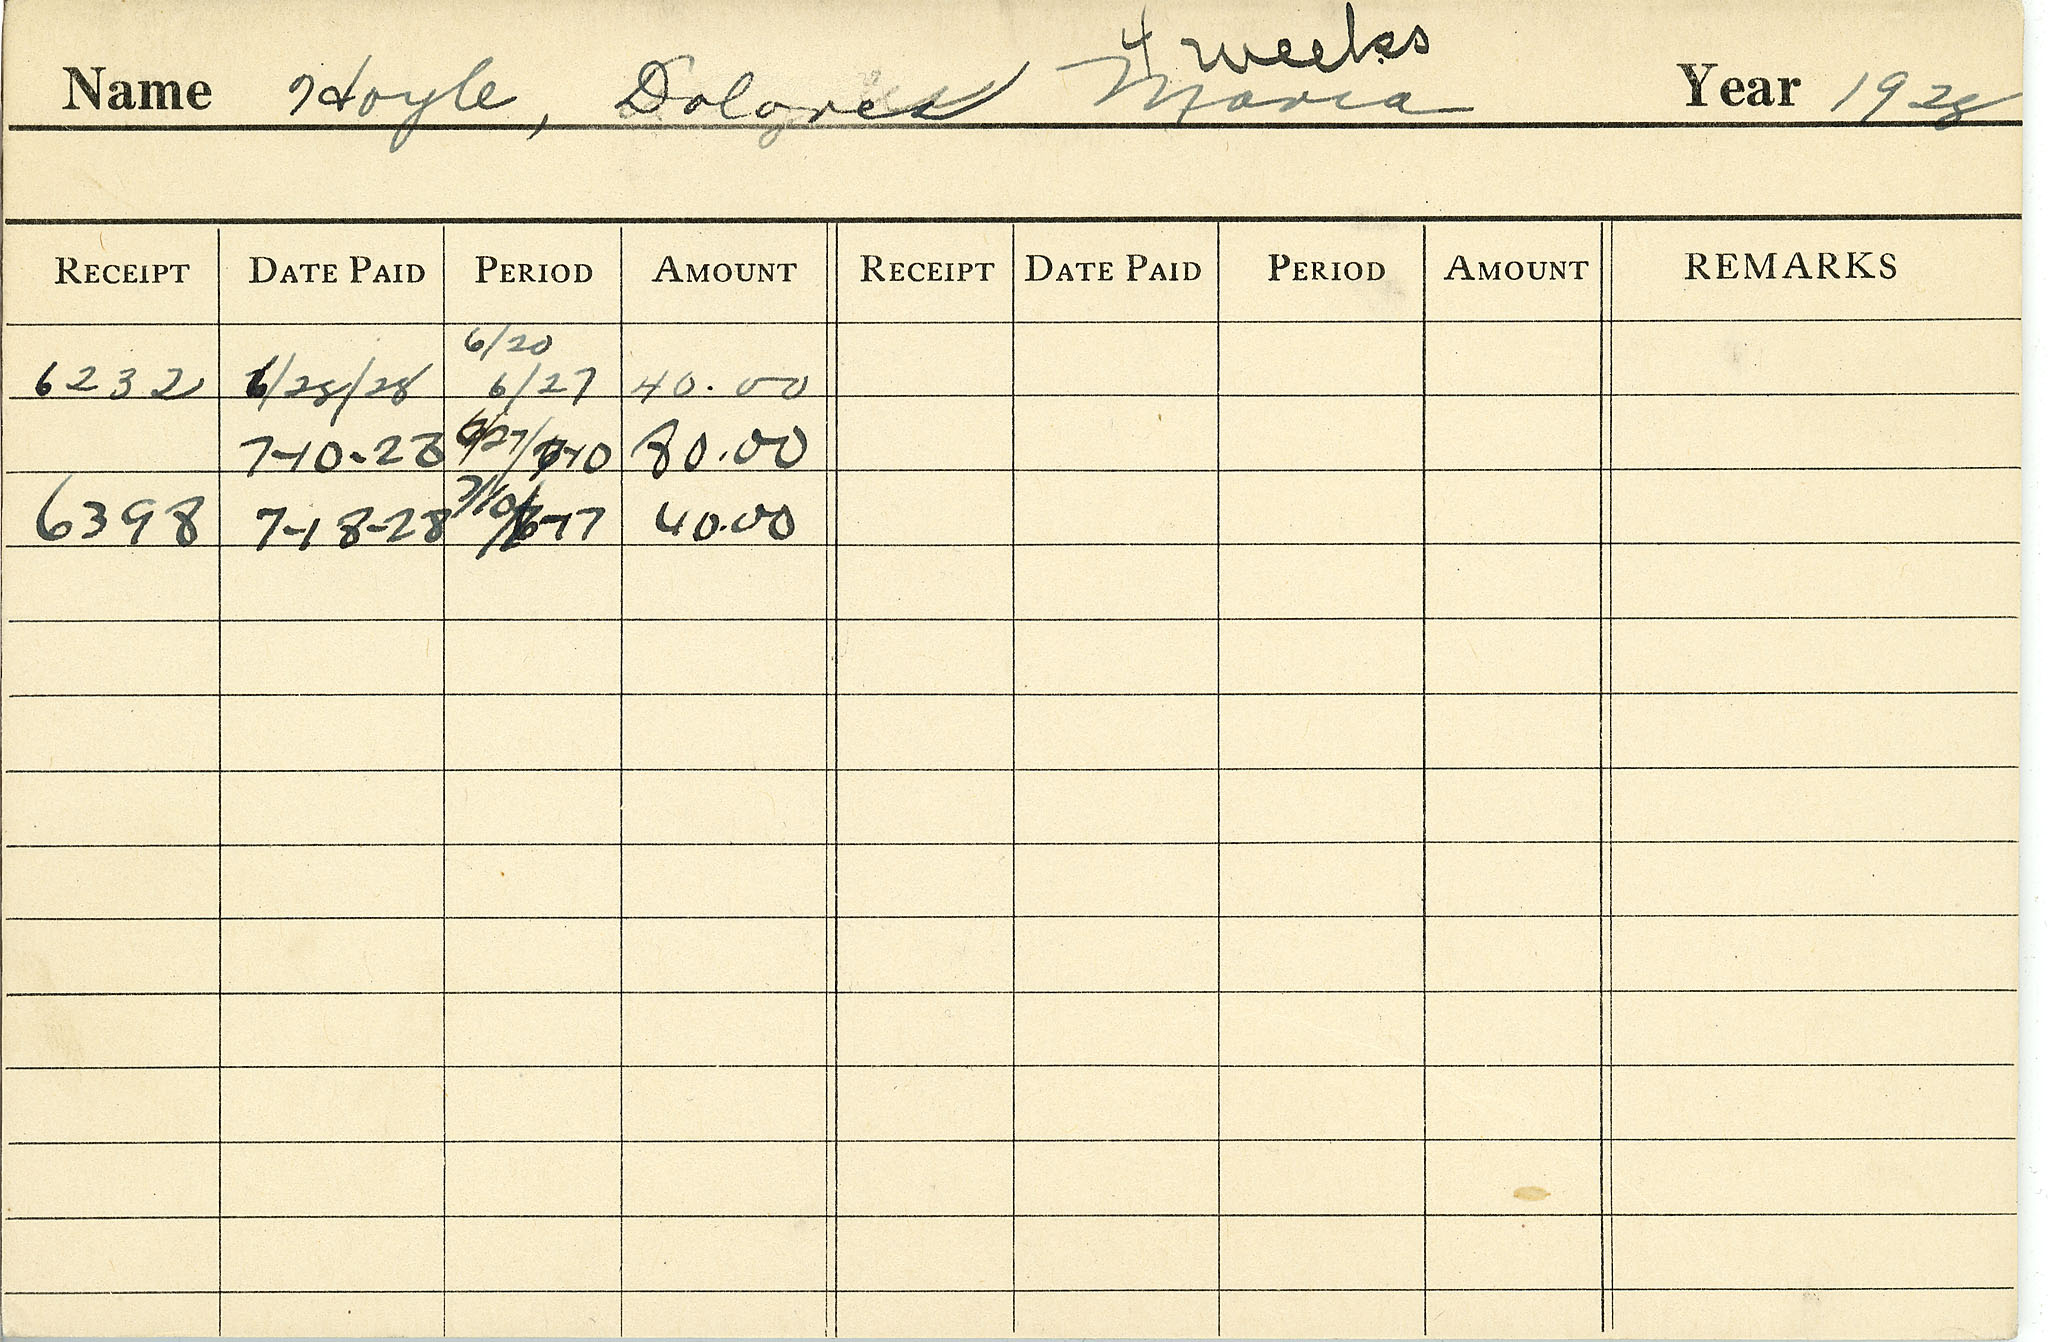 4 weeks
Name Hoyle, Dolores Maria Year 1928
RECEIPT DATE PAID PERIOD AMOUNT RECEIPT DATE PAID PERIOD AMOUNT REMARKS
6/20
6232 6/28/28 6/27 40.00
7-10-28 6/27/7-10 80.00
6398 7-18-28 7/10/7-17 40.00